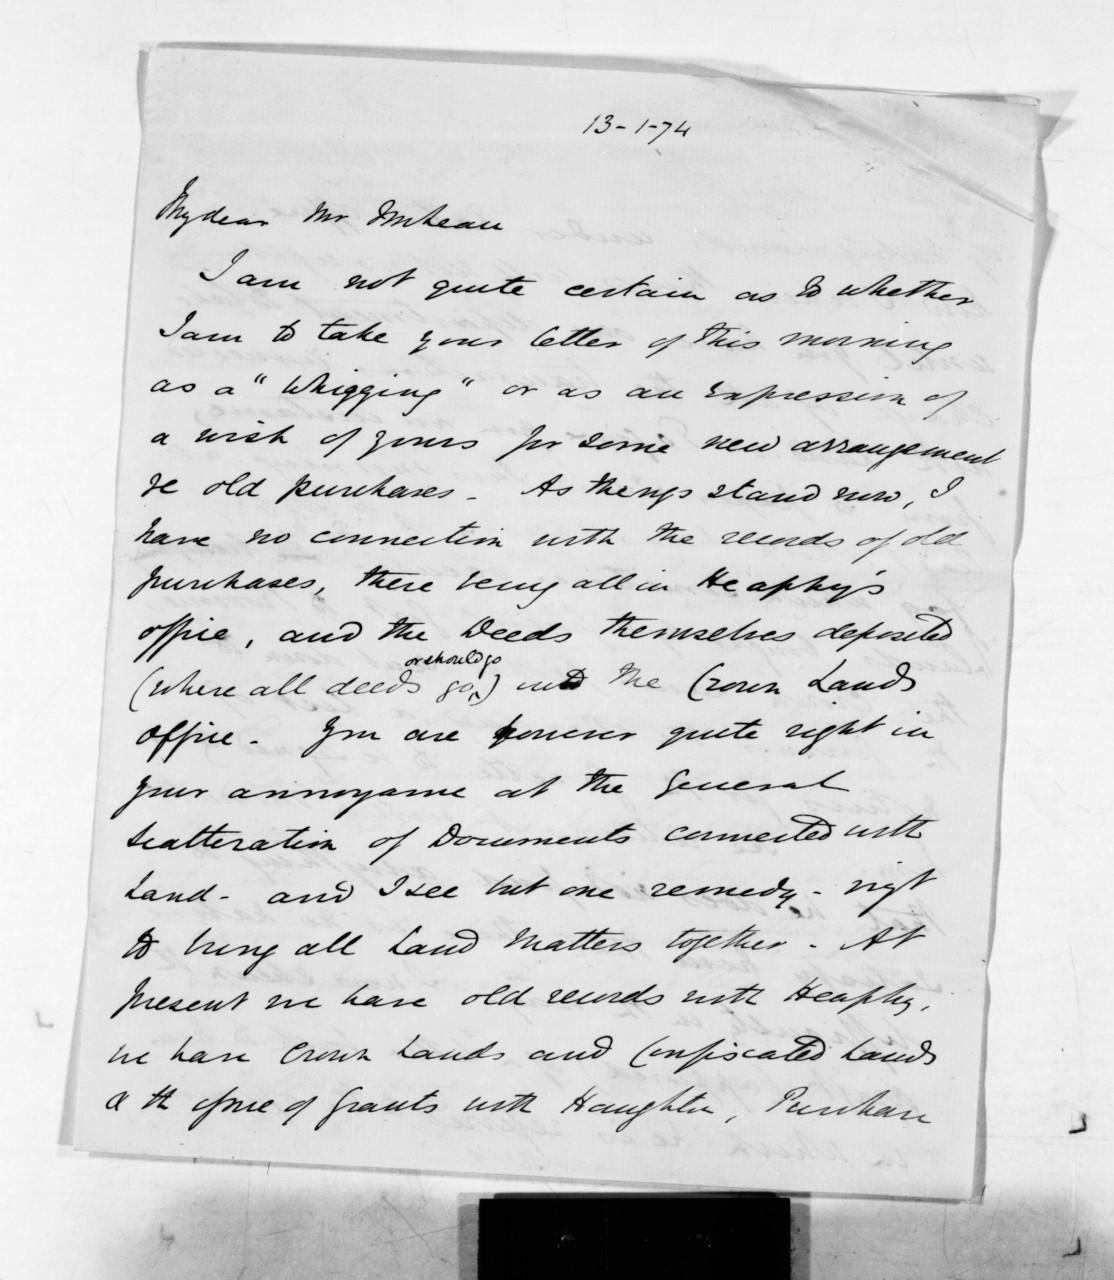 13-1-74
My dear Mr McLean
I am not quite certain as to whether
I am to take your letter of this morning
as a "Whigging" or as an Expression of
a wish of yours for some new arrangement
re old purchases - As things stand now, I
have no connection with the records of old
purchases, these being all in Heaphy's
office, and the Deeds themselves deposited
(where all deeds go, or should go) into the Crown Lands
Office - You are however quite right in
your annoyance at the General
Scatteration of Documents connected with
Land - and I see but one remedy -
to bring all Land Matters together - At
present we have old records with Heaphy,
we have Crown Lands and Confiscated Lands
& the issue of Grants with Haughton, Purchase